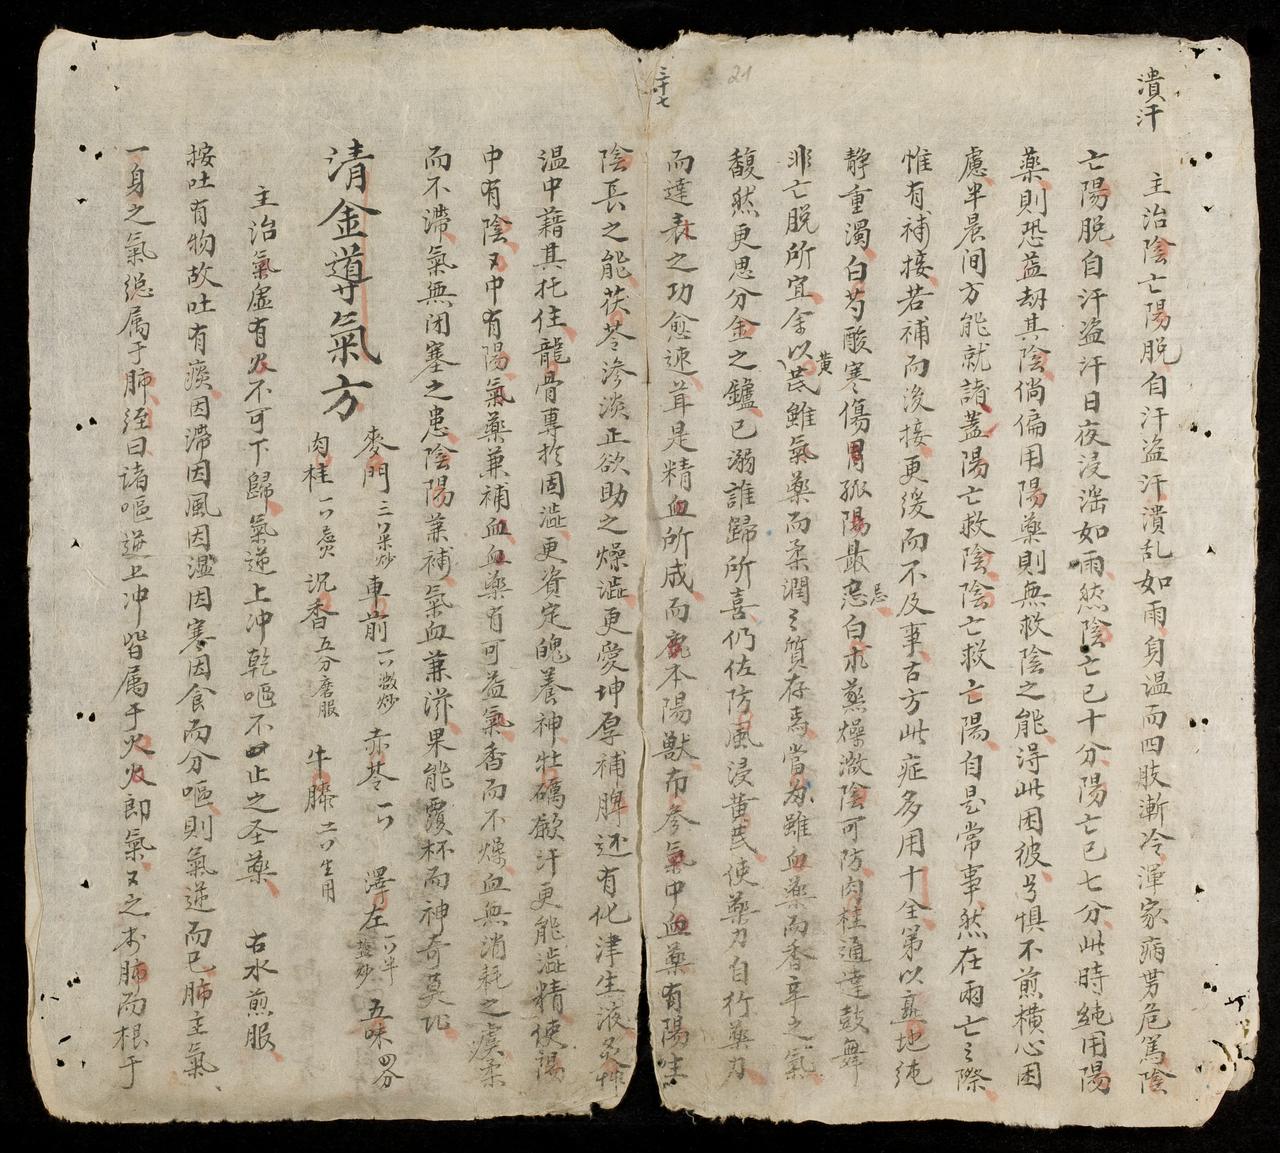 潰汗
主治陰亡陽脱自汗盗汗潰乱如雨身温而四肢漸冷渾家病势危篤陰
亡陽脱自汗盗汗日夜浸淫如雨然陰亡已十分陽亡已七分此時純用陽
藥則恐益刼其陰倘偏用陽藥則無救陰之能淂此困彼兮惧不煎横心困
慮半晨间方能就諸蓋陽亡救陰陰亡救亡陽自是常事然在雨亡之際
惟有補接若補而後接更缓而不及事古方此症多用十全第以熟地純
静重濁白芍酸寒傷胃孤陽最忌白朮蒸燥澈陰可防肉桂通達鼓舞
忌
非亡脱所宜余以芪雖氣藥而柔潤之質存焉當歸雖血藥而香辛之氣
黄
馥然更思分金之鑪已溺誰歸所喜仍佐防風浸黄芪使藥力自行藥力
而達表之功愈速茸是精血所成而鹿本陽獸布参氣中血藥有陽生
三十七
21
陰長之能茯苓渗淡正欲助之燥澁更愛坤厚補脾还有化津生液炙艸
温中藉其托住龍骨專於固澁更資定魄養神牡礪歛汗更能澁精使陽
中有陰又中有陽氣藥兼補血血藥有可益氣香而不燥血無消耗之虞柔
而不滯氣無闭塞之患陰陽兼補氣血兼滋果能覆杯而神奇莫比
清金導氣方
麥門三𠆢米炒 車前一𠆢澈炒 赤苓一𠆢 澤左六𠆢半塩炒 五味四分
肉桂一𠆢去皮 沉香五分磨服 牛膝二𠆢生用
主治氣虚有火不可下歸氣逆上冲乾嘔不止之圣藥 右水煎服
按吐有物故吐有痰因滞因風因濕因寒因食而分嘔則氣逆而已肺主氣
一身之氣総属于肺経曰诸嘔逆上冲皆属于火火即氣又之本肺而根于